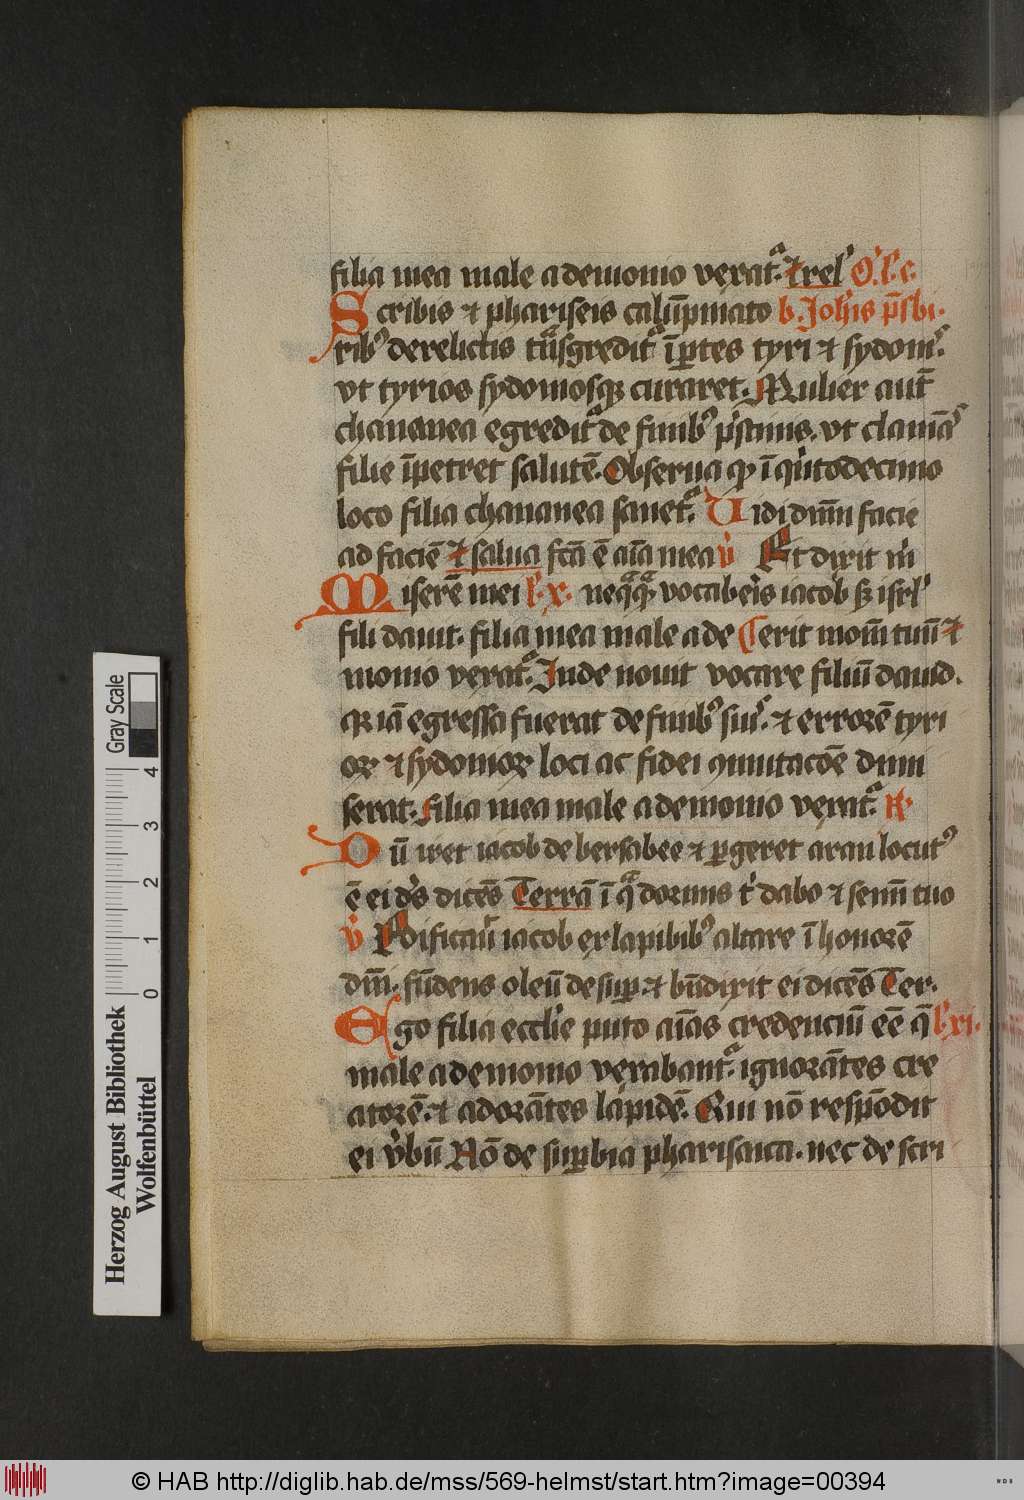 filia mea male a demonio vexat᷑. ⁊ rel' O. l' c.
Scribis et phariseis calūpniato b. Joh'is p̄sbi.
rib᷒ derelictis tn̄sgredit᷑ ī ꝑtes tyri et sydonis.
vt tyrios sydoniosqꝫ curaret. Mulier aut̄
chananea egredit᷑ de finib᷒ p'stinis. vt clamās
filie īpetret salutē. Obserua qꝫ ī qu'ntodecimo
loco filia chananea sanet᷑. Vidi dn̄m facie
ad faciē ⁊ salua fc̄a ē aīa mea v̓ Et dixit m'
Miserē mei l'. x. neqꝗ̄ꝗ̄ vocabe'is iacob sꝫ isrl'
fili dauit. filia mea male a de Cerit nom̄ tuū ⁊
monio vexat᷑. Inde nouit vocare filiū dauid.
qꝛ iā egressa fuerat de finib᷒ suis. et errorē tyri
oꝝ et sydonioꝝ loci ac fidei ꝯmutac̄oe dimi
serat. Filia mea male a demonio vexat᷑. R̸.
Dū iret iacob de bersabee et ꝑgeret aran locut᷒
ē ei dn̄s dicēs Terrā ī q̄ dormis t' dabo et semi̅ tuo
v̓ Edificauit iacob ex lapidib᷒ altare ī honorē
dn̄i. fūdens oleū desuꝑ et bn̄dixit ei dicēs Ter.
Ego filiā eccl'ie puto aīas credenciū eē q̄ l'. xi.
male a demonio vexabant᷑. ignorātes cre
atorē. et adorātes lapidē. Qui nō respōdit
ei v̓bū Nō de suꝑbia pharisaica. nec de scri
Gray Scale
4
3
2
1
0
Herzog August Bibliothek
Wolfenbüttel
© HAB http://diglib.hab.de/mss/569-helmst/start.htm?image=00394